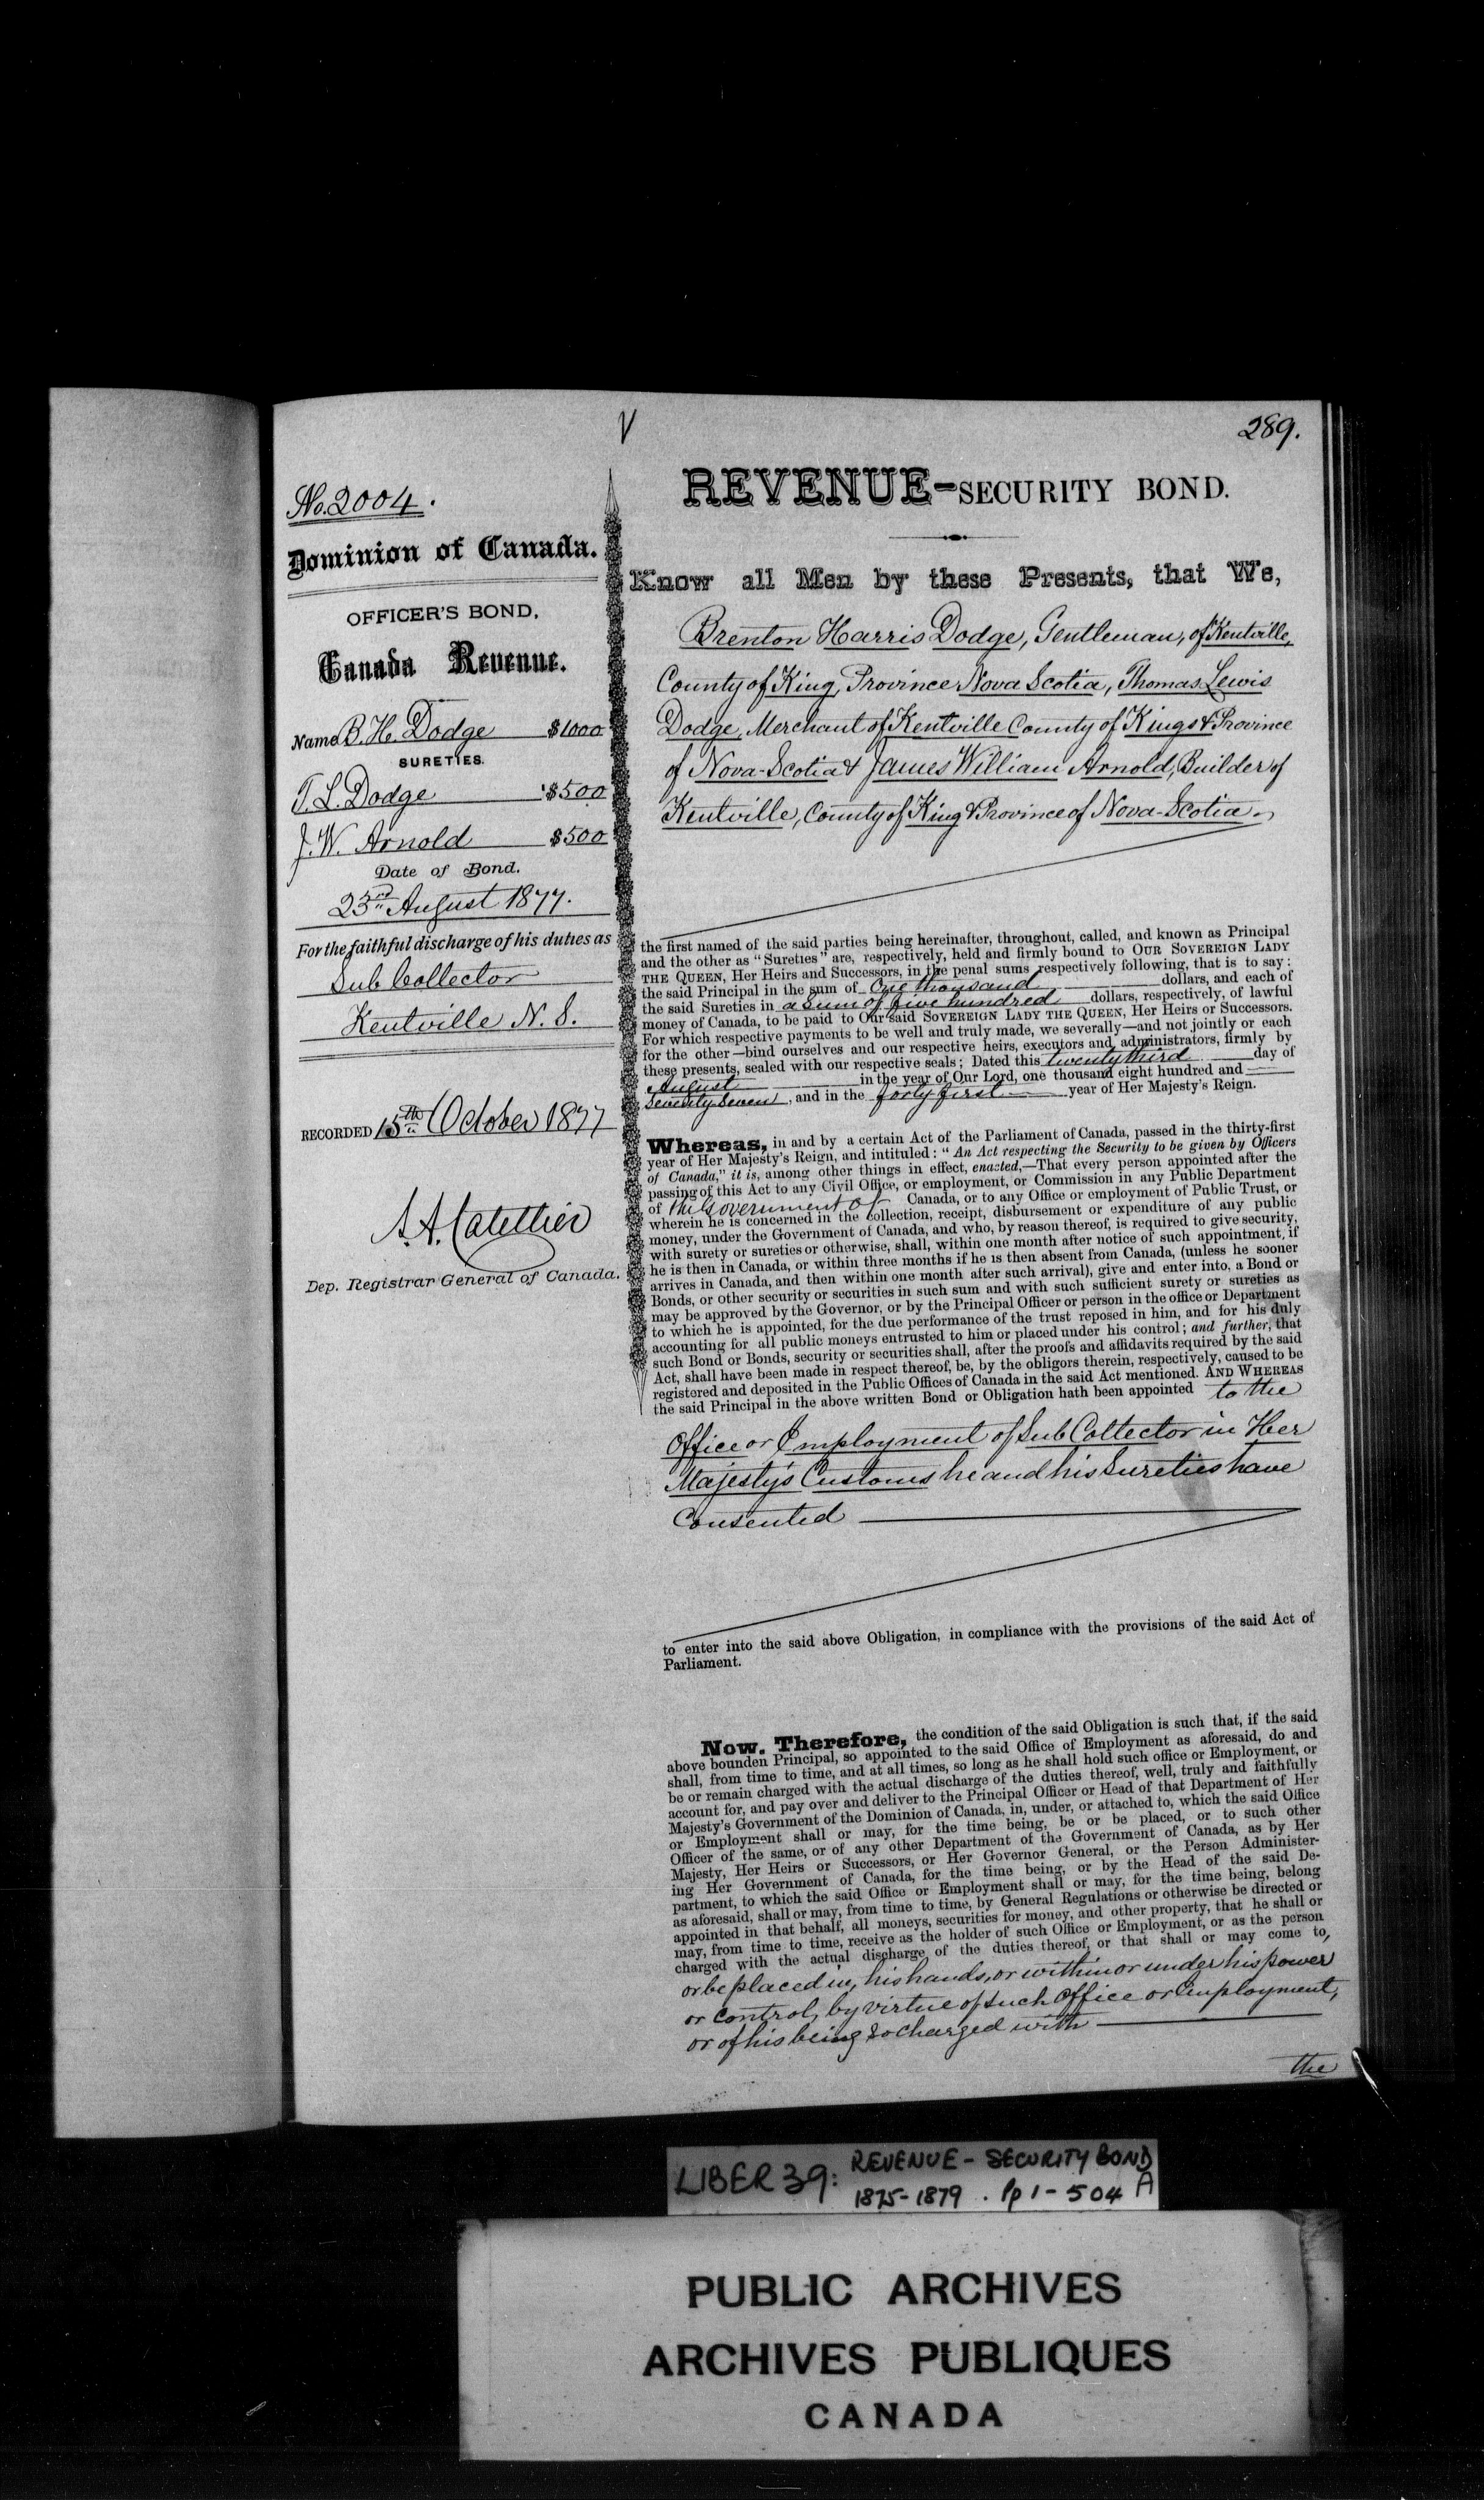 289.
No. 2004.
Dominion of Canada.
OFFICER'S BOND,
Canada Revenue.
Name B. H. Dodge $1000
SURETIES.
T. L. Dodge $500
J. W. Arnold $500
Date of Bond.
23rd August 1877.
For the faithful discharge of his duties as
Sub Collector
Kentville N. S.
RECORDED 15th October 1877
Dep. Registrar General of Canada.
REVENUE-SECURITY BOND.
Know all Men by these Presents, that We,
Brenton Harris Dodge, Gentleman, of Kentville,
County of King, Province Nova Scotia, Thomas Lewis
Dodge, Merchant of Kentville County of Kings & Province
of Nova-Scotia & James William Arnold, Builder of
Kentville, County of King & Province of Nova-Scotia
the first named of the said parties being hereinafter, throughout, called, and known as Principal
and the other as "Sureties" are, respectively, held and firmly bound to OUR SOVEREIGN LADY
THE QUEEN, Her Heirs and Successors, in the penal sums respectively following, that is to say:
the said Principal in the sum of One thousand dollars, and each of
the said Sureties in a sum of five hundred dollars, respectively, of lawful
money of Canada, to be paid to Our said SOVEREIGN LADY THE QUEEN, Her Heirs or Successors.
For which respective payments to be well and truly made, we severally—and not jointly or each
for the other—bind ourselves and our respective heirs, executors and administrators, firmly by
these presents, sealed with our respective seals; Dated this twenty third day of
August in the year of Our Lord, one thousand eight hundred and
Seventy Seven, and in the forty first year of Her Majesty's Reign.
Whereas, in and by a certain Act of the Parliament of Canada, passed in the thirty-first
year of Her Majesty's Reign, and intituled: "An Act respecting the Security to be given by Officers
of Canada," it is, among other things in effect, enacted,—That every person appointed after the
passing of this Act to any Civil Office, or employment, or Commission in any Public Department
of the Government of Canada, or to any Office or employment of Public Trust, or
wherein he is concerned in the collection, receipt, disbursement or expenditure of any public
money, under the Government of Canada, and who, by reason thereof, is required to give security,
with surety or sureties or otherwise, shall, within one month after notice of such appointment, if
he is then in Canada, or within three months if he is then absent from Canada, (unless he sooner
arrives in Canada, and then within one month after such arrival), give and enter into, a Bond or
Bonds, or other security or securities in such sum and with such sufficient surety or sureties as
may be approved by the Governor, or by the Principal Officer or person in the office or Department
to which he is appointed, for the due performance of the trust reposed in him, and for his duly
accounting for all public moneys entrusted to him or placed under his control; and further, that
such Bond or Bonds, security or securities shall, after the proofs and affidavits required by the said
Act, shall have been made in respect thereof, be, by the obligors therein, respectively, caused to be
registered and deposited in the Public Offices of Canada in the said Act mentioned. AND WHEREAS
the said Principal in the above written Bond or Obligation hath been appointed to the
Office or Employment of Sub Collector in Her
Majesty's Customs he and his Sureties have
Consented
to enter into the said above Obligation, in compliance with the provisions of the said Act of
Parliament.
Now, Therefore, the condition of the said Obligation is such that, if the said
above bounden Principal, so appointed to the said Office of Employment as aforesaid, do and
shall, from time to time, and at all times, so long as he shall hold such office or Employment, or
be or remain charged with the actual discharge of the duties thereof, well, truly and faithfully
account for, and pay over and deliver to the Principal Officer or Head of that Department of Her
Majesty's Government of the Dominion of Canada, in, under, or attached to, which the said Office
or Employment shall or may, for the time being, be or be placed, or to such other
Officer of the same, or of any other Department of the Government of Canada, as by Her
Majesty, Her Heirs or Successors, or Her Governor General, or the Person Administer-
ing Her Government of Canada, for the time being, or by the Head of the said De-
partment, to which the said Office or Employment shall or may, for the time being, belong
as aforesaid, shall or may, from time to time, by General Regulations or otherwise be directed or
appointed in that behalf, all moneys, securities for money, and other property, that he shall or
may, from time to time, receive as the holder of such Office or Employment, or as the person
charged with the actual discharge of the duties thereof, or that shall or may come to,
or be placed in, his hands, or within or under his power
or control, by virtue of such Office or Employment,
or of his being so charged with
the
LIBER 39: REVENUE - SECURITY BOND
1875-1879 . Pp 1 - 504 A
PUBLIC ARCHIVES
ARCHIVES PUBLIQUES
CANADA